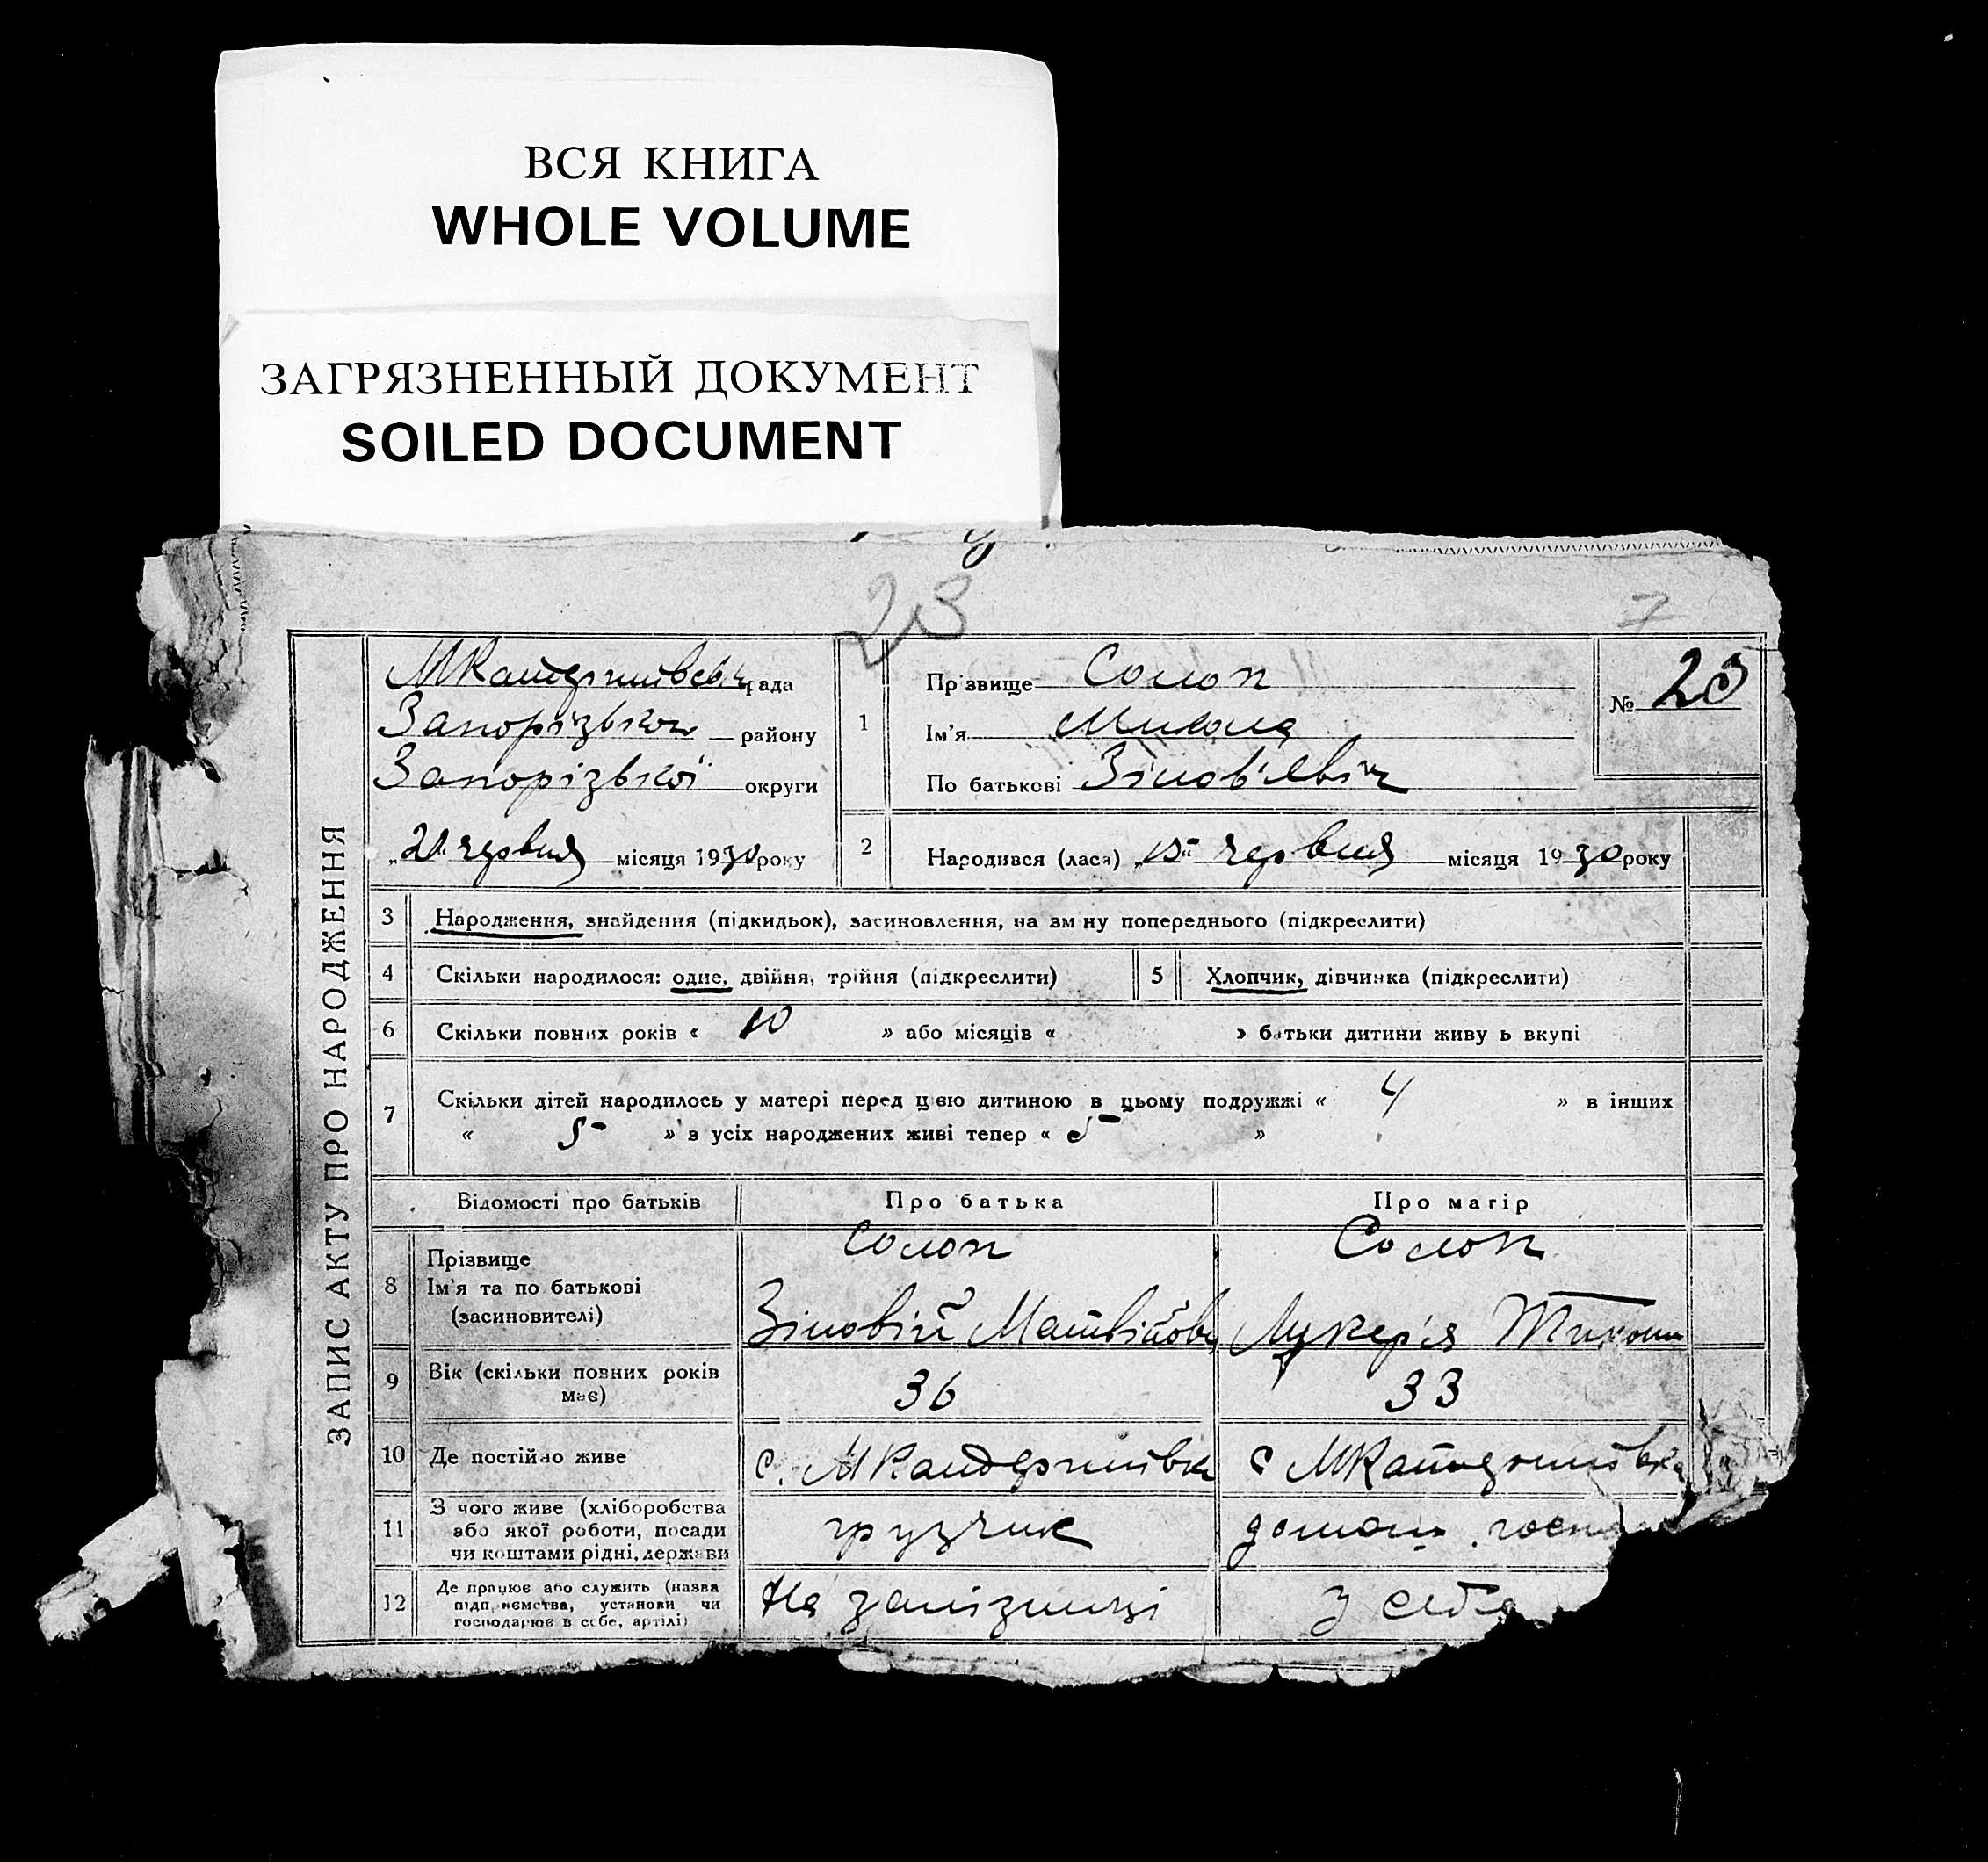 ВСЯ КНИГА
WHOLE VOLUME
ЗАГРЯЗНЕННЫЙ ДОКУМЕНТ
SOILED DOCUMENT
23
7
ЗАПИС АКТУ ПРО НАРОДЖЕННЯ
рада
Запорізької району
Запорізької округи
„20“ червня місяця 1930 року
1
Прізвище Солоп
Ім'я Микола
По батькові Зіновієвіч
№ 23
2 Народився (лася) „15“ червня місяця 1930 року
3 Народження, знайдення (підкидьок), засиновлення, на зміну попереднього (підкреслити)
4 Скільки народилося: одне, двійня, трійня (підкреслити) 5 Хлопчик, дівчинка (підкреслити)
6 Скільки повних років « 10 » або місяців « » батьки дитини живуть вкупі
7 Скільки дітей народилось у матері перед цією дитиною в цьому подружжі « 4 » в інших
« 5 » з усіх народжених живі тепер « 5 »
Відомості про батьків Про батька Про матір
8 Прізвище Солоп Солоп
Ім'я та по батькові
(засиновителі) Зіновій Матвійов Лукер'я Тихон
9 Вік (скільки повних років
має) 36 33
10 Де постійно живе с. с
11 З чого живе (хліборобства
або якої роботи, посади
чи коштами рідні, держави грузчик домаш. госп
12 Де працює або служить (назва
підприємства, установи чи
господарює в себе, артілі) На залізниці У себе